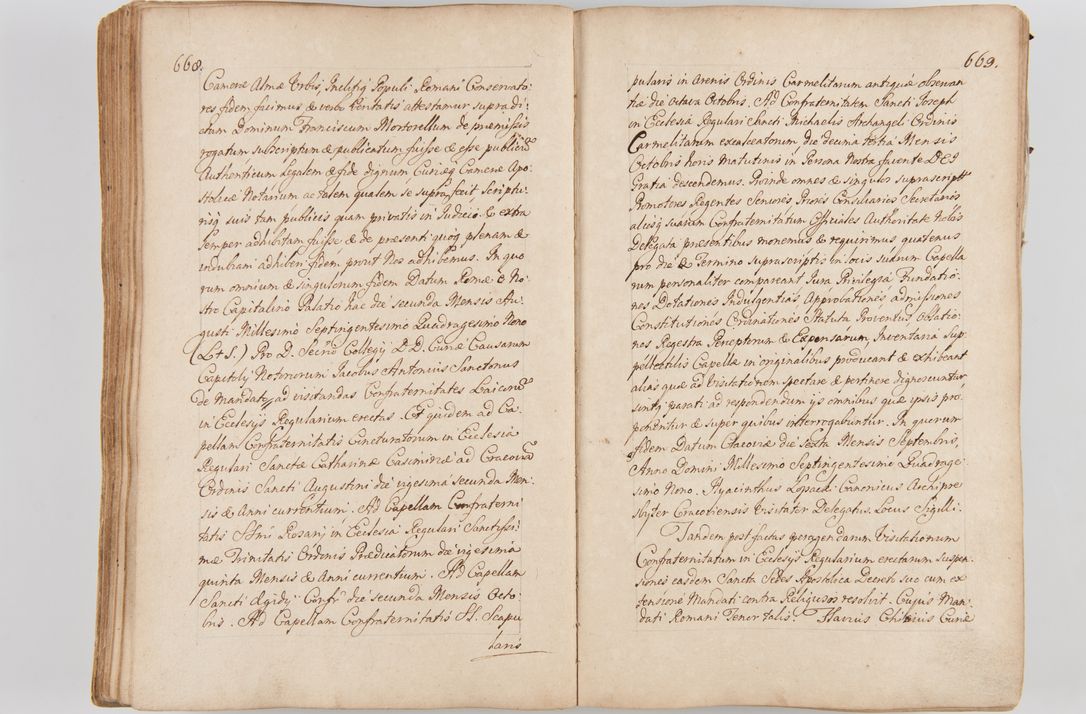 668.
Camerae Almae Urbis, Inclitiq Populi Romani Conservato:
res fidem facimus & verbo Veritatis attestamur supra di:
ctum Dominum Franciscum Mortorellum de praemissis
rogatum subscriptum & publicatum fuisse & esse publicũ
Authenticum Legalem & fide dignum Curiaeq Camerae Apo:
stolicae Notarium ac talem qualem se supra fecit Scriptu:
risq suis tam publicis quam privatis in Judicio & extra
semper adhibitam fuisse & de praesenti quoq plenam &
indubiam adhiberi fidem prout Nos adhibemus. In quo
rum omnium & singulorum fidem Datum Romae è No:
stro Capitolino Palatio hac die secunda Mensis Au:
gusti Millesimo Septingentesimo Quadragesimo Nono
(L+S.) Pro D. Secrio Collegij D.D. Curiae Causarum
Capitolij Notariorum Jacobus Antonius Sanctorius
de Mandato ad visitandas Confraternitates Laicorũ
in Ecclesijs Regularium erectas. Et quidem ad Ca:
pellam Confraternitatis Cincturatorum in Ecclesia
Regulari Sanctae Catharinae Casimiriae ad Cracoviã
Ordinis Sancti Augustini die vigesima secunda Men:
sis & Anni currentium. Ad Capellam Confraterni
tatis SSmi Rosarij in Ecclesia Regulari Sanctissi:
mae Trinitatis Ordinis Praedicatorum die vigesima
quinta Mensis & Anni currentium. Ad Capellam
Sancti Aegidij Confr die secunda Mensis Octo:
bris. Ad Capellam Confraternitatis SS. Scapu
laris
669.
pularis in Arenis Ordinis Carmelitarum antiquae observan
tiae die Octava Octobris. Ad Confraternitatem Sancti Joseph
in Ecclesia Regulari Sancti Michaelis Archangeli Ordinis
Carmelitarum excalceatorum die decima tertia Mensis
Octobris horis matutinis in Persona Nostra favente DEI
Gratia descendemus. Proinde omnes & singulos suprascriptos
Promotores Regentes Seniores Priores Consiliarios Secretarios
aliosq suarum Confraternitatum Officiales Authoritate Nobis
Delegata praesentibus monemus & requirimus quatenus
pro die & Termino suprascriptis in locis suarum Capella
rum personaliter compareant Jura Privilegia Fundatio:
nes Dotationes Indulgentias Approbationes admissiones
Constitutiones Ordinationes Statuta Proventus Oblatio:
nes Regestra Perceptorum & Expensarum Inventaria Sup:
pellectilis Capellae in originalibus producant & exhibeant
alias quae ad Visitationem spectare & pertinere dignoscuntur,
sintq parati ad respondendum ijs omnibus quae ipsis pro:
ponentur & super quibus interrogabuntur. In quorum
fidem Datum Cracoviae die Sexta Mensis Septembris,
Anno Domini Millesimo Septingentesimo Quadrage:
simo Nono. Hyacinthus Łopacki Canonicus Archipre
sbyter Cracoviensis Visitator Delegatus. Locus Sigilli.
Tandem post factas peragendarum Visitationum
Confraternitatum in Ecclesijs Regularium erectarum suspen:
siones easdem Sancta Sedes Apostolica Decreto suo cum ex
tensione Mandati contra Religiosos resolvit. Cujus Man:
dati Romani Tenor talis. Flavius Chisius Curiae